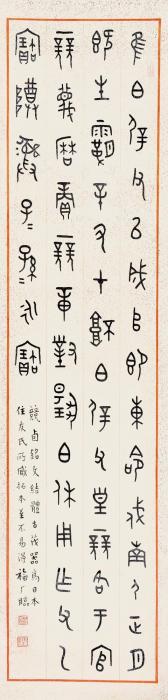 隹白屖父以成𠂤即東命戍南夷正月
既生霸辛丑才坯白屖父皇競各于官
競蔑曆賞競章對揚白休用乍父乙
寶尊彝子=孫=永寶
競卣銘文結體古茂器為日本
住友氏所藏拓本並不易得福厂臨